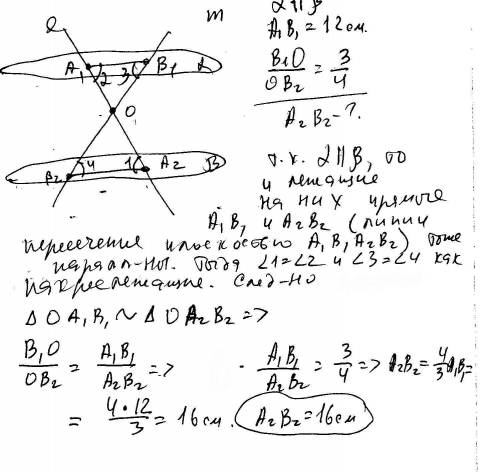 l
m
A₁
2
3
B₁
α
O
B₂
4
1
A₂
β
α∥β
A₁B₁ = 12 см.
B₁O/OB₂ = 3/4
A₂B₂ - ?
т.к. α∥β, то
и лежащие
на них прямые
A₁B₁ и A₂B₂ (линии
пересечение плоскостью A₁B₁A₂B₂) тоже
парал-ны. Тогда ∠1=∠2 и ∠3=∠4 как
накрестлежащие. След-но
Δ OA₁B₁ ~ Δ OA₂B₂ =>
B₁O/OB₂ = A₁B₁/A₂B₂ => · A₁B₁/A₂B₂ = 3/4 => A₂B₂ = 4/3 A₁B₁ =
= 4·12/3 = 16 см. A₂B₂ = 16 см